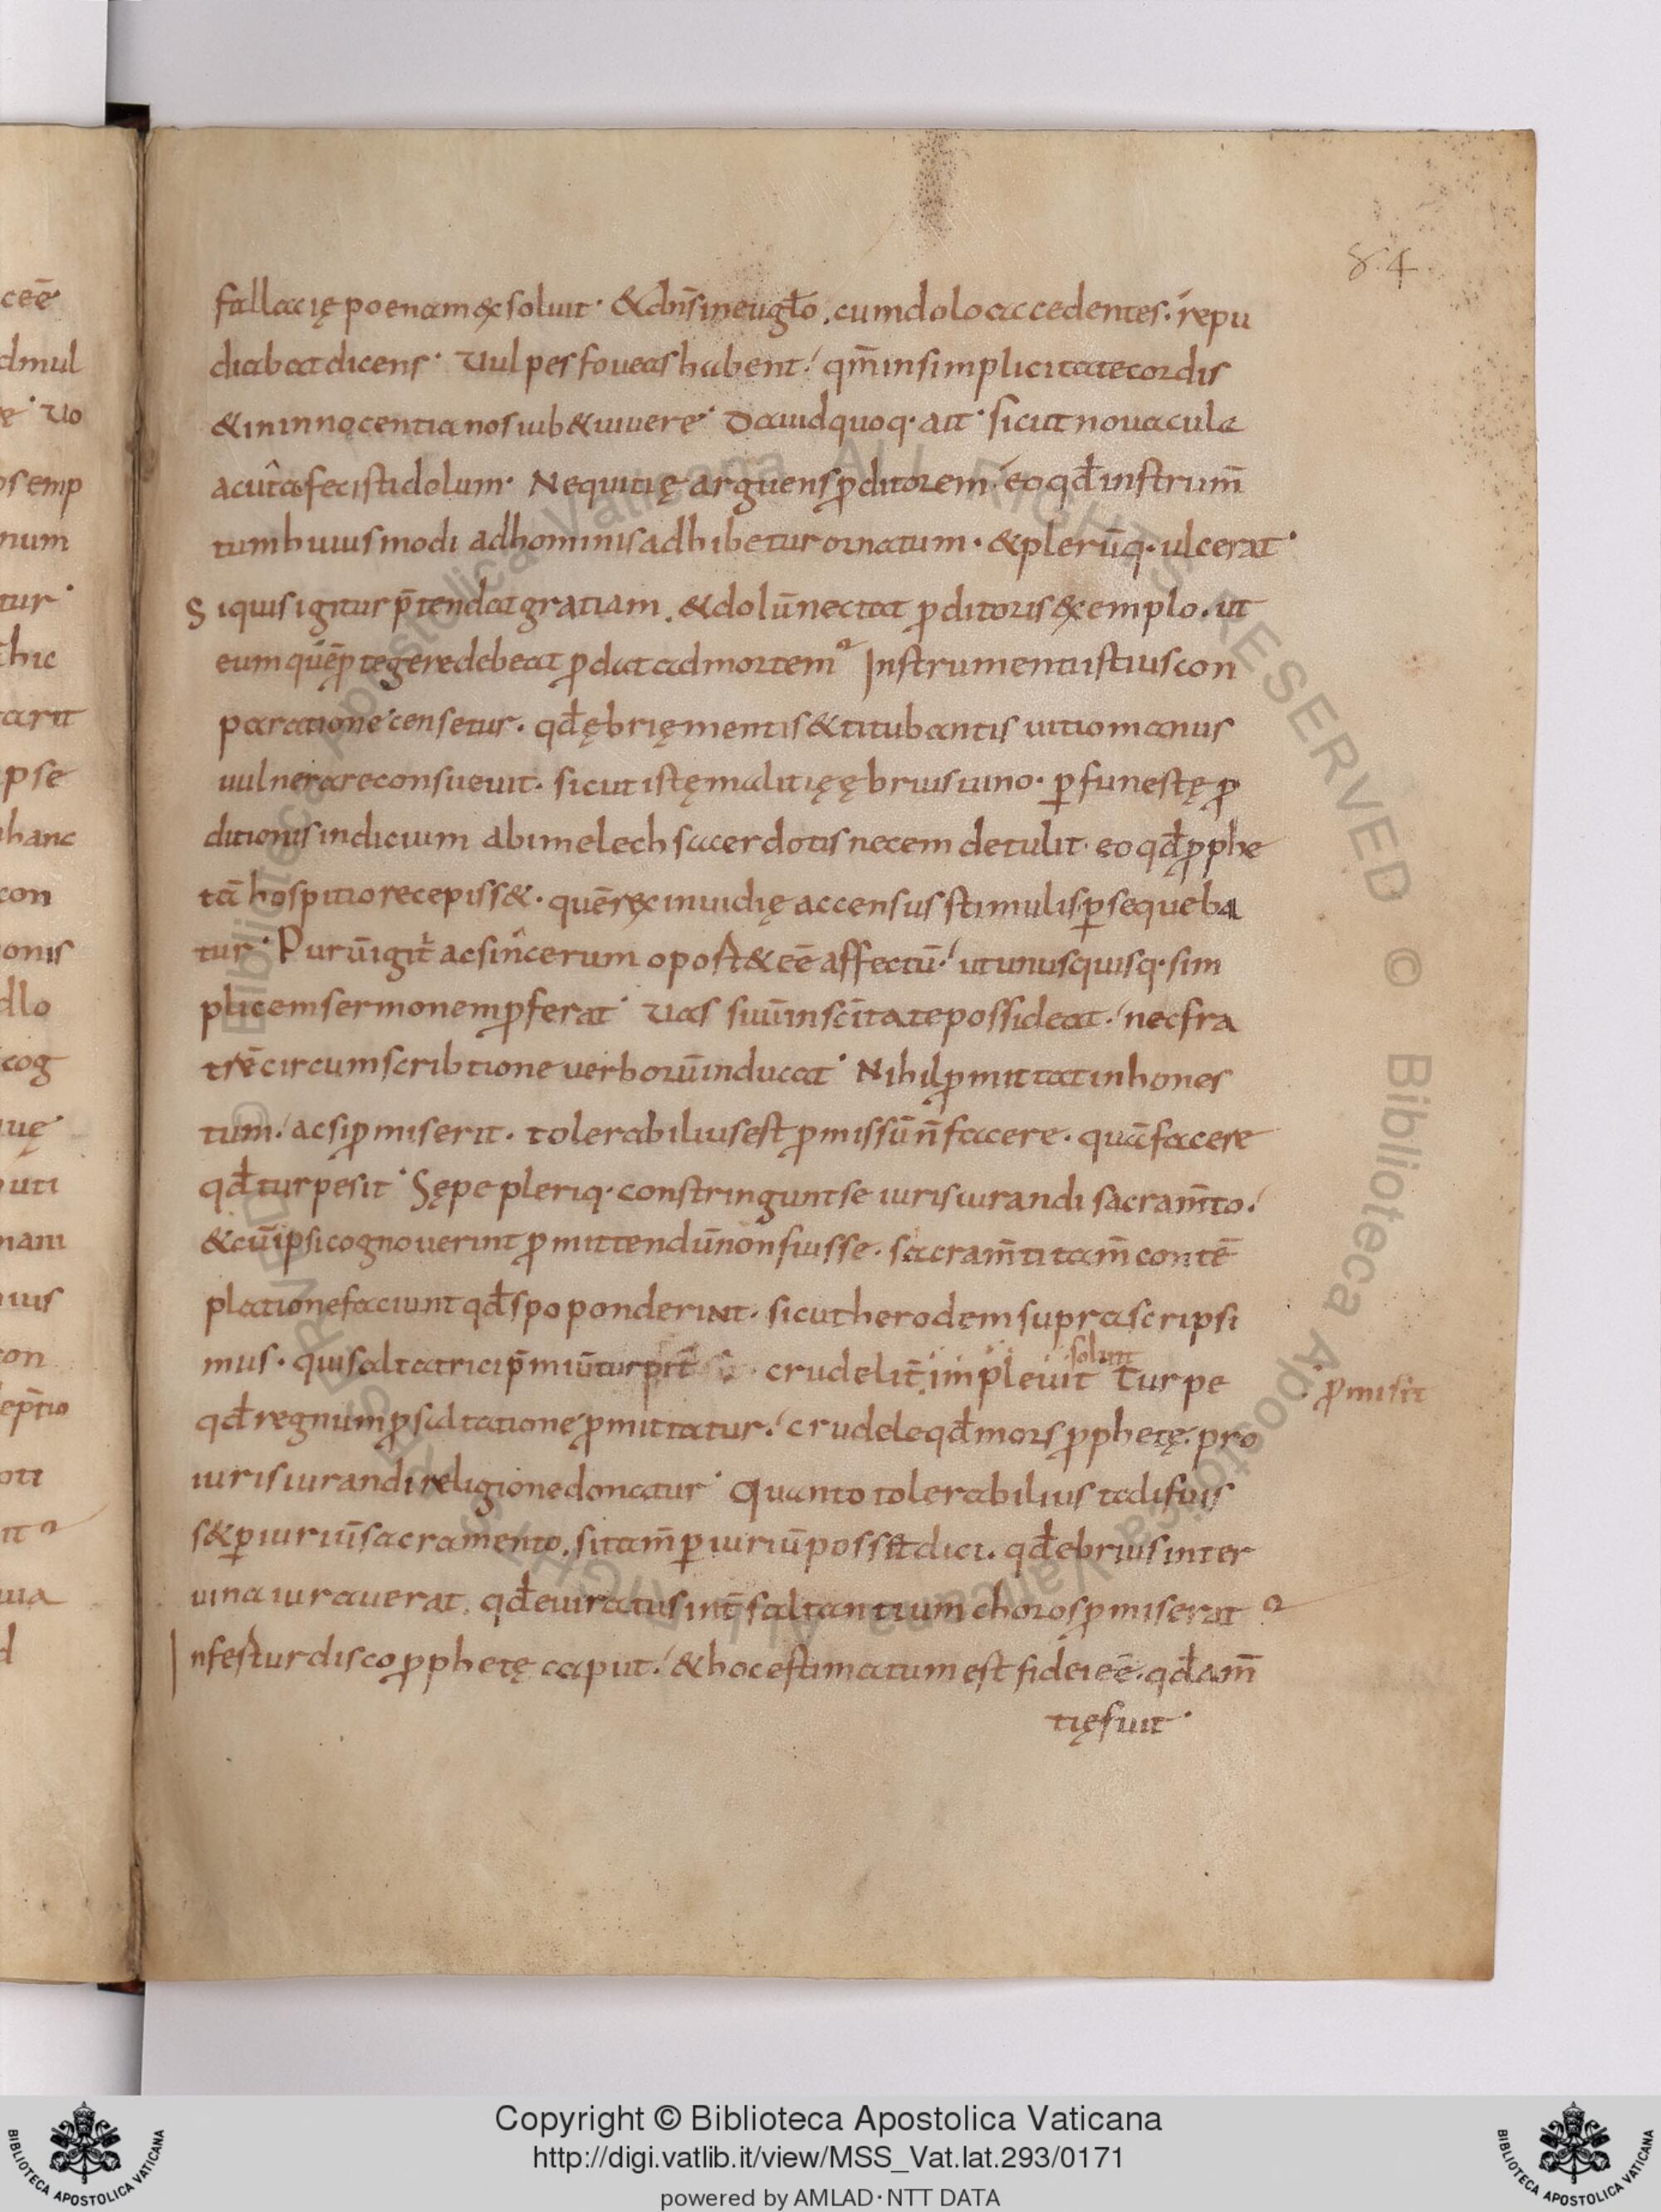 84
fallacię poenam exsoluit. & dn̄s in eugło, cum dolo accedentes. repu
diabat dicens. Vulpes foueas habent. qm̄ in simplicitate cordis
& in innocentia nos iub& uiuere. Dauid quoq. ait. sicut nouacula
acuta fecisti dolum. Nequitię arguens ꝓditorem. eo qđ instrum̄
tum huiusmodi ad hominis adhibetur ornatum. & plerūq. ulcerat.
Si quis igitur p̄tendat gratiam. & dolū nectat ꝓditoris exemplo. ut
eum quē ꝓtegere debeat ꝓdat ad mortem? Instrumenti istius con
paratione censetur. qđ ębrię mentis & titubantis uitio manus
uulnerare consueuit. sicut istę malitię ębrius uino. ꝑ funestę ꝓ
ditionis indicium abimelech sacerdotis necem detulit. eo qđ ꝓphe
tā hospitio recepiss&. quē rex inuidię accensus stimulis ꝑsequeba
tur. Purū igit̄ ac sincerum oport& eē affectū. ut unusquisq. sim
plicem sermonem ꝓferat. Vas suū in sc̄itate possideat. nec fra
trē circumscribtione uerborū inducat. Nihil ꝓmittat inhones
tum. ac si ꝓmiserit. tolerabilius est ꝓmissū n̄ facere. quā facere
qđ turpe sit. Sępe pleriq. constringunt se iurisiurandi sacram̄to.
& cū ipsi cognouerint ꝓmittendū non fuisse. sacram̄ti tam̄ contē
platione faciunt qđ spoponderint. sicut herodem supra scripsi
mus. qui saltatrici p̄miū turpit̄ crudelit̄ impleuit Turpe
soluit
ꝓmisit
qđ regnum ꝓ saltatione ꝓmittatur. crudele qđ mors ꝓphetę. pro
iurisiurandi religione donatur. Quanto tolerabilius tali fuis
s& ꝑiuriū sacramento. si tam̄ ꝑiuriū possit dici. qđ ebrius inter
uina iurauerat. qđ euiratus int̄ saltantium choros ꝓmiserat?
Infertur disco ꝓphetę caput. & hoc estimatum est fidei eē. qđ am̄
tię fuit.
ceē
dmul
e. Vo
semp
num
tur.
hic
arit
pse
hanc
con
onis
dlo
cog
uę
uti
nam
ius
con
ep̄tio
oti
it?
uia
d
© Biblioteca Apostolica Vaticana ALL RIGHTS RESERVED
© Biblioteca Apostolica Vaticana ALL RIGHTS RESERVED
BIBLIOTECA APOSTOLICA VATICANA
Copyright © Biblioteca Apostolica Vaticana
http://digi.vatlib.it/view/MSS_Vat.lat.293/0171
powered by AMLAD·NTT DATA
BIBLIOTECA APOSTOLICA VATICANA